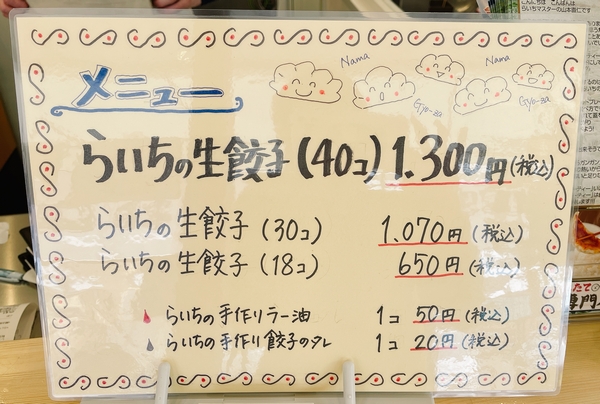 メニュー
Nama
Gyo-za
Nama
Gyo-za
らいちの生餃子(40コ) 1.300円(税込)
らいちの生餃子(30コ) 1.070円(税込)
らいちの生餃子(18コ) 650円(税込)
らいちの手作りラー油 1コ 50円(税込)
らいちの手作り餃子のタレ 1コ 20円(税込)